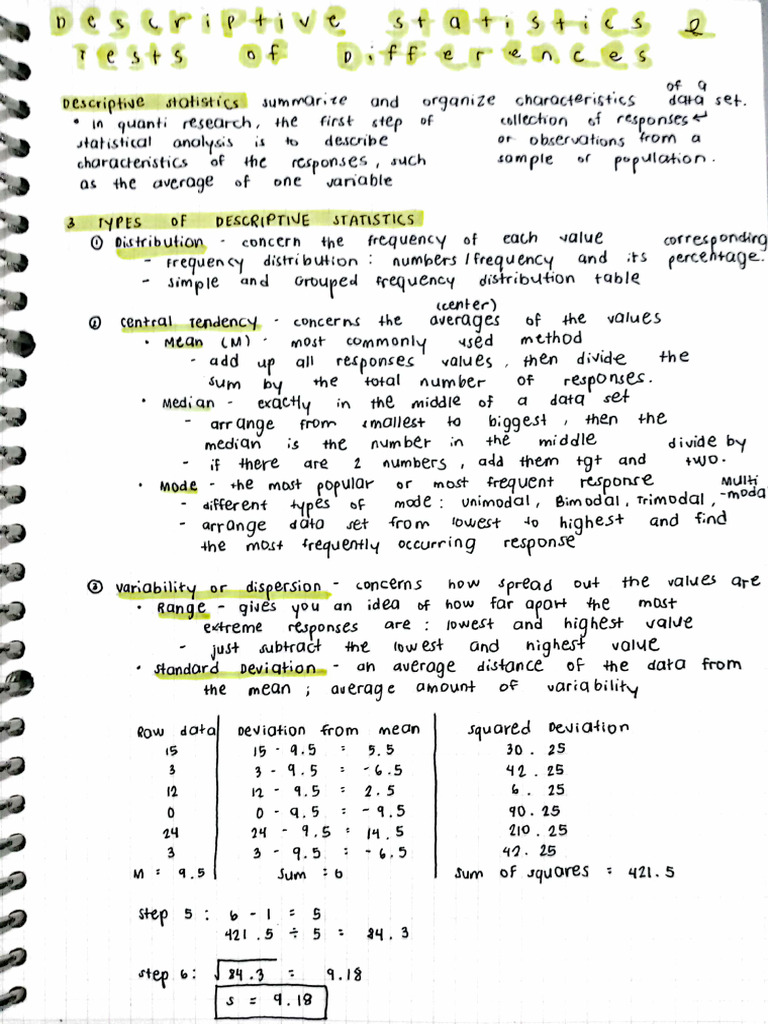 Descriptive statistics &
Tests of Differences
Descriptive statistics summarize and organize characteristics of a data set.
• In quanti research, the first step of collection of responses ↵
statistical analysis is to describe or observations from a
characteristics of the responses, such sample or population.
as the average of one variable
3 TYPES OF DESCRIPTIVE STATISTICS
① Distribution - concern the frequency of each value corresponding
- Frequency distribution : numbers / frequency and its percentage.
- simple and Grouped frequency distribution table
(center)
② Central Tendency - concerns the averages of the values
• Mean (M) - most commonly used method
- add up all responses values, then divide the
sum by the total number of responses.
• Median - exactly in the middle of a data set
- arrange from smallest to biggest, then the
median is the number in the middle
- if there are 2 numbers, add them tgt and divide by two.
• Mode - the most popular or most frequent response
- different types of mode : unimodal, Bimodal, Trimodal, Multi-modal
- arrange data set from lowest to highest and find
the most frequently occurring response
③ Variability or dispersion - concerns how spread out the values are
• Range - gives you an idea of how far apart the most
extreme responses are : lowest and highest value
- just subtract the lowest and highest value
• Standard Deviation - an average distance of the data from
the mean ; average amount of variability
Raw data Deviation from mean Squared Deviation
15 15 - 9.5 = 5.5 30.25
3 3 - 9.5 = -6.5 42.25
12 12 - 9.5 = 2.5 6.25
0 0 - 9.5 = -9.5 90.25
24 24 - 9.5 = 14.5 210.25
3 3 - 9.5 = -6.5 42.25
M = 9.5 Sum = 0 Sum of squares = 421.5
Step 5 : 6 - 1 = 5
421.5 ÷ 5 = 84.3
step 6 : √84.3 = 9.18
s = 9.18